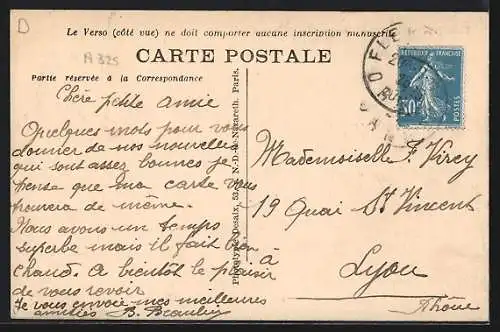 D
Le Verso (côté vue) ne doit comporter aucune inscription manuscrite
A 325
CARTE POSTALE
Partie réservée à la Correspondance
Chère petite amie
Quelques mots pour vous
donner de nos nouvelles
qui sont assez bonnes je
pense que ma carte vous
trouvera de même.
Nous avons un temps
superbe mais il fait bien
chaud. A bientôt le plaisir
de vous revoir
Je vous envoie mes meilleures
amitiés B. Beaulieu
Phototypie Desaix, N.-D.-de-Nazareth, Paris.
RÉPUBLIQUE FRANÇAISE
30c
POSTES
Mademoiselle J. Virey
19 Quai St Vincent
à
Lyon
Rhône